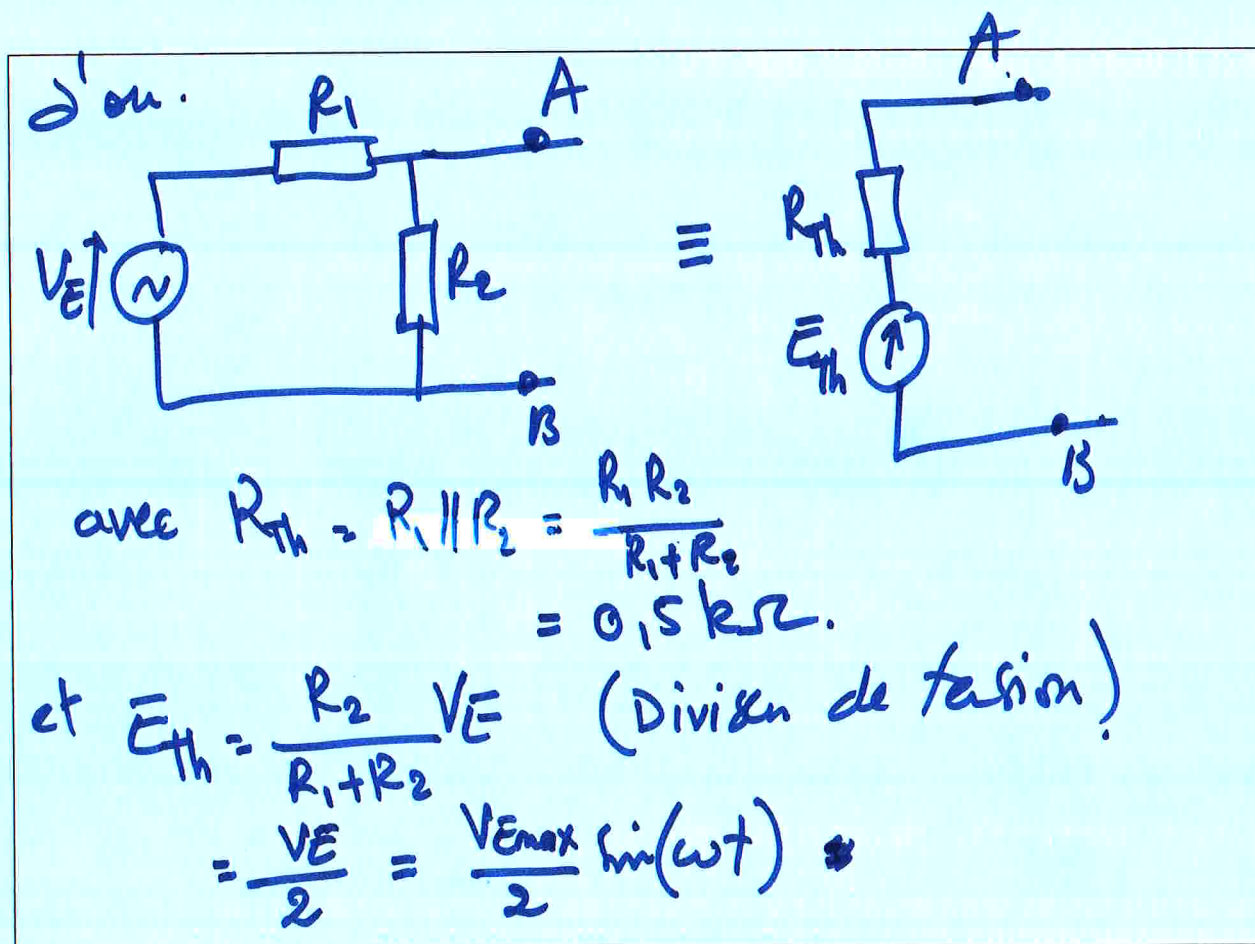 d'où.
R1 A
VE ~ R2
B
≡
A
RTh
ETh
B
avec RTh = R1 || R2 = R1 R2 / R1 + R2
= 0,5 kΩ.
et ETh = R2 / R1 + R2 VE (Diviseur de tension)
= VE / 2 = VEmax / 2 sin(ωt)